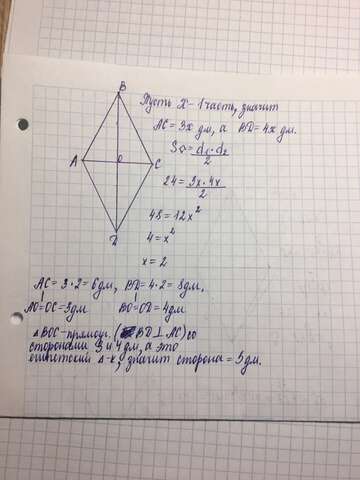 B
Пусть X - 1 часть, значит
AC = 3x дм, а BD = 4x дм.
S◇ = d₁ · d₂ / 2
A
O
C
24 = 3x · 4x / 2
48 = 12x²
4 = x²
D
x = 2
AC = 3 · 2 = 6 дм, BD = 4 · 2 = 8 дм,
AO = OC = 3 дм BO = OD = 4 дм
△ BOC - прямоуг. (BD ⊥ AC) со
сторонами 3 и 4 дм, а это
египетский △-к, значит сторона = 5 дм.